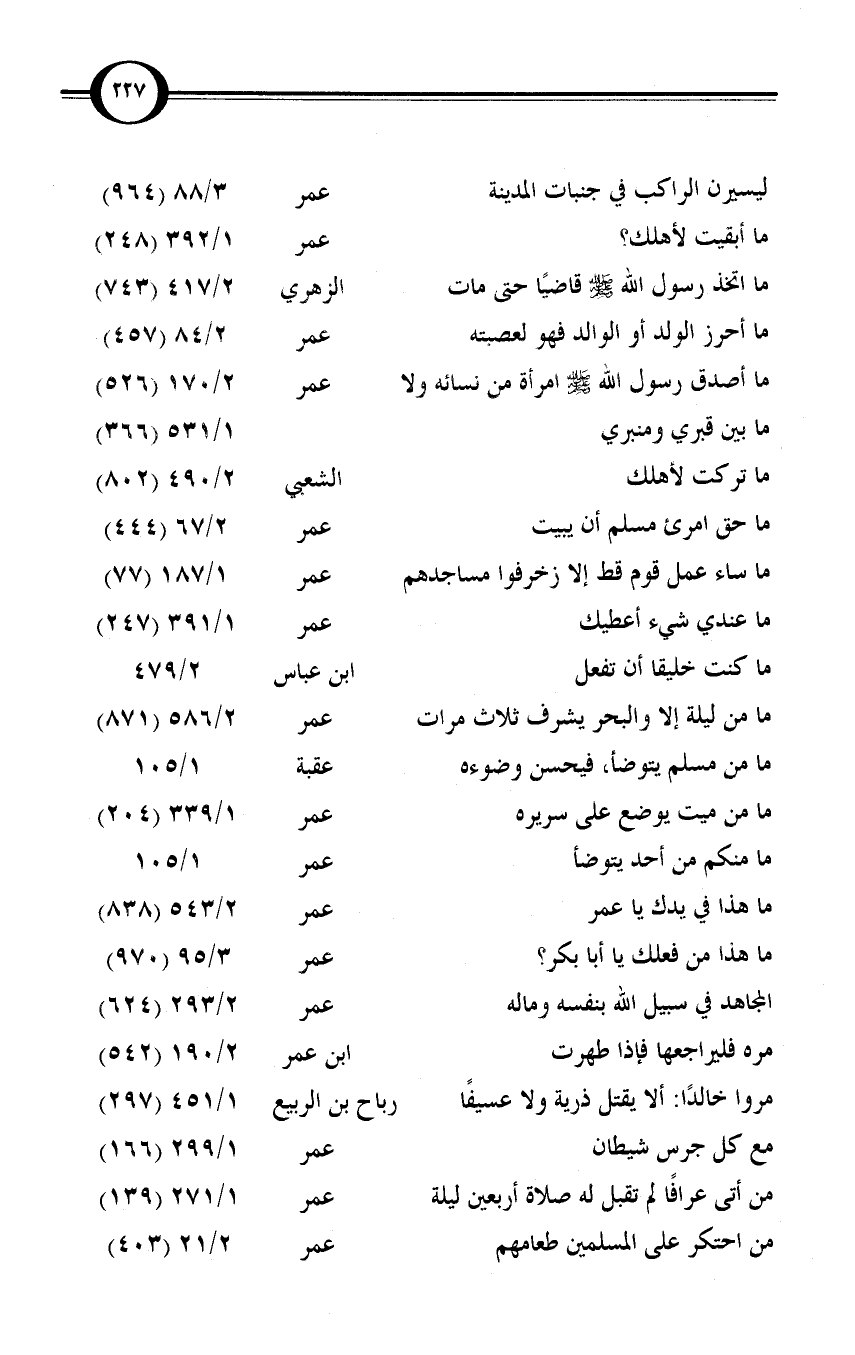 ٢٢٧
ليسيرن الراكب في جنبات المدينة عمر ٨٨/٣ (٩٦٤)
ما أبقيت لأهلك؟ عمر ٣٩٢/١ (٢٤٨)
ما اتخذ رسول الله ﷺ قاضيًا حتى مات الزهري ٤١٧/٢ (٧٤٣)
ما أحرز الولد أو الوالد فهو لعصبته عمر ٨٤/٢ (٤٥٧)
ما أصدق رسول الله ﷺ امرأة من نسائه ولا عمر ١٧٠/٢ (٥٢٦)
ما بين قبري ومنبري ٥٣١/١ (٣٦٦)
ما تركت لأهلك الشعبي ٤٩٠/٢ (٨٠٢)
ما حق امرئ مسلم أن يبيت عمر ٦٧/٢ (٤٤٤)
ما ساء عمل قوم قط إلا زخرفوا مساجدهم عمر ١٨٧/١ (٧٧)
ما عندي شيء أعطيك عمر ٣٩١/١ (٢٤٧)
ما كنت خليقا أن تفعل ابن عباس ٤٧٩/٢
ما من ليلة إلا والبحر يشرف ثلاث مرات عمر ٥٨٦/٢ (٨٧١)
ما من مسلم يتوضأ، فيحسن وضوءه عقبة ١٠٥/١
ما من ميت يوضع على سريره عمر ٣٣٩/١ (٢٠٤)
ما منكم من أحد يتوضأ عمر ١٠٥/١
ما هذا في يدك يا عمر عمر ٥٤٣/٢ (٨٣٨)
ما هذا من فعلك يا أبا بكر؟ عمر ٩٥/٣ (٩٧٠)
المجاهد في سبيل الله بنفسه وماله عمر ٢٩٣/٢ (٦٢٤)
مره فليراجعها فإذا طهرت ابن عمر ١٩٠/٢ (٥٤٢)
مروا خالدًا: ألا يقتل ذرية ولا عسيفًا رباح بن الربيع ٤٥١/١ (٢٩٧)
مع كل جرس شيطان عمر ٢٩٩/١ (١٦٦)
من أتى عرافًا لم تقبل له صلاة أربعين ليلة عمر ٢٧١/١ (١٣٩)
من احتكر على المسلمين طعامهم عمر ٢١/٢ (٤٠٣)